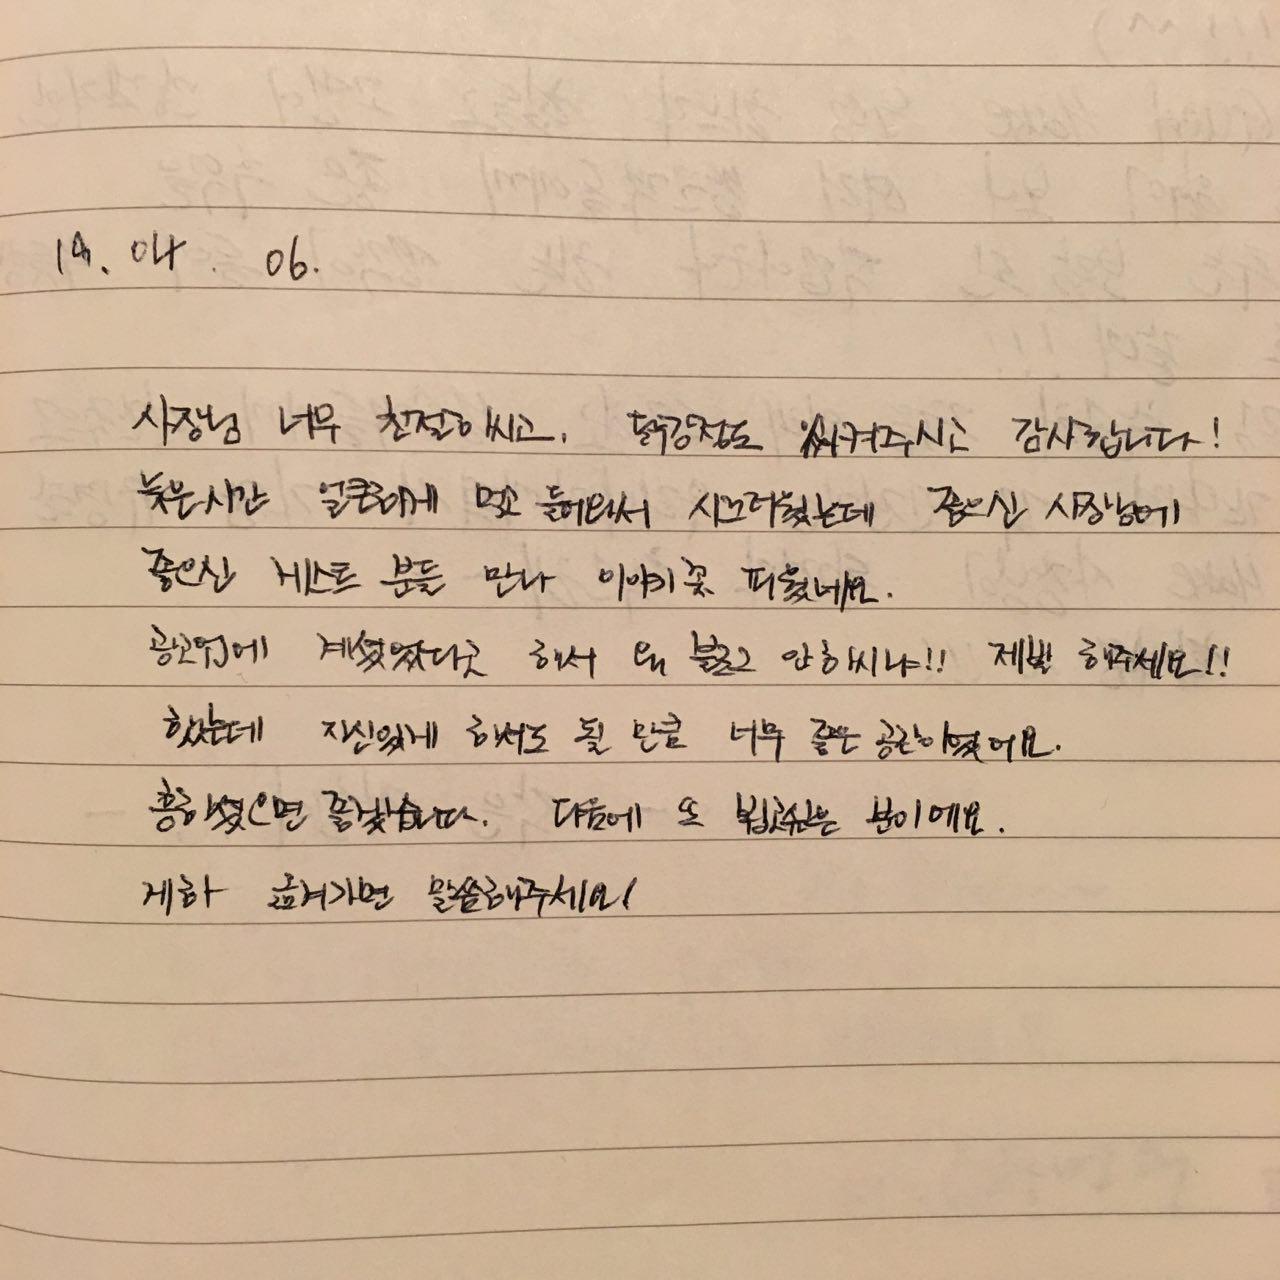 19. 04. 06.
사장님 너무 친절하시고, 닭강정도 시켜주시고 감사합니다!
늦은시간 얼큰하게 먹고 들어와서 시끄러웠는데 좋으신 사장님에
좋으신 게스트 분들 만나 이야기꽃 피웠네요.
광고업에 계셨었다곳 해서 왜 블로그 안하시냐!! 제발 해주세요!!
했는데 자신있게 하셔도 될 만큼 너무 좋은 공간이였어요.
흥하셨으면 좋겠습니다. 다음에 또 뵙고싶은 분이에요.
게하 옮겨가면 말씀해주세요!